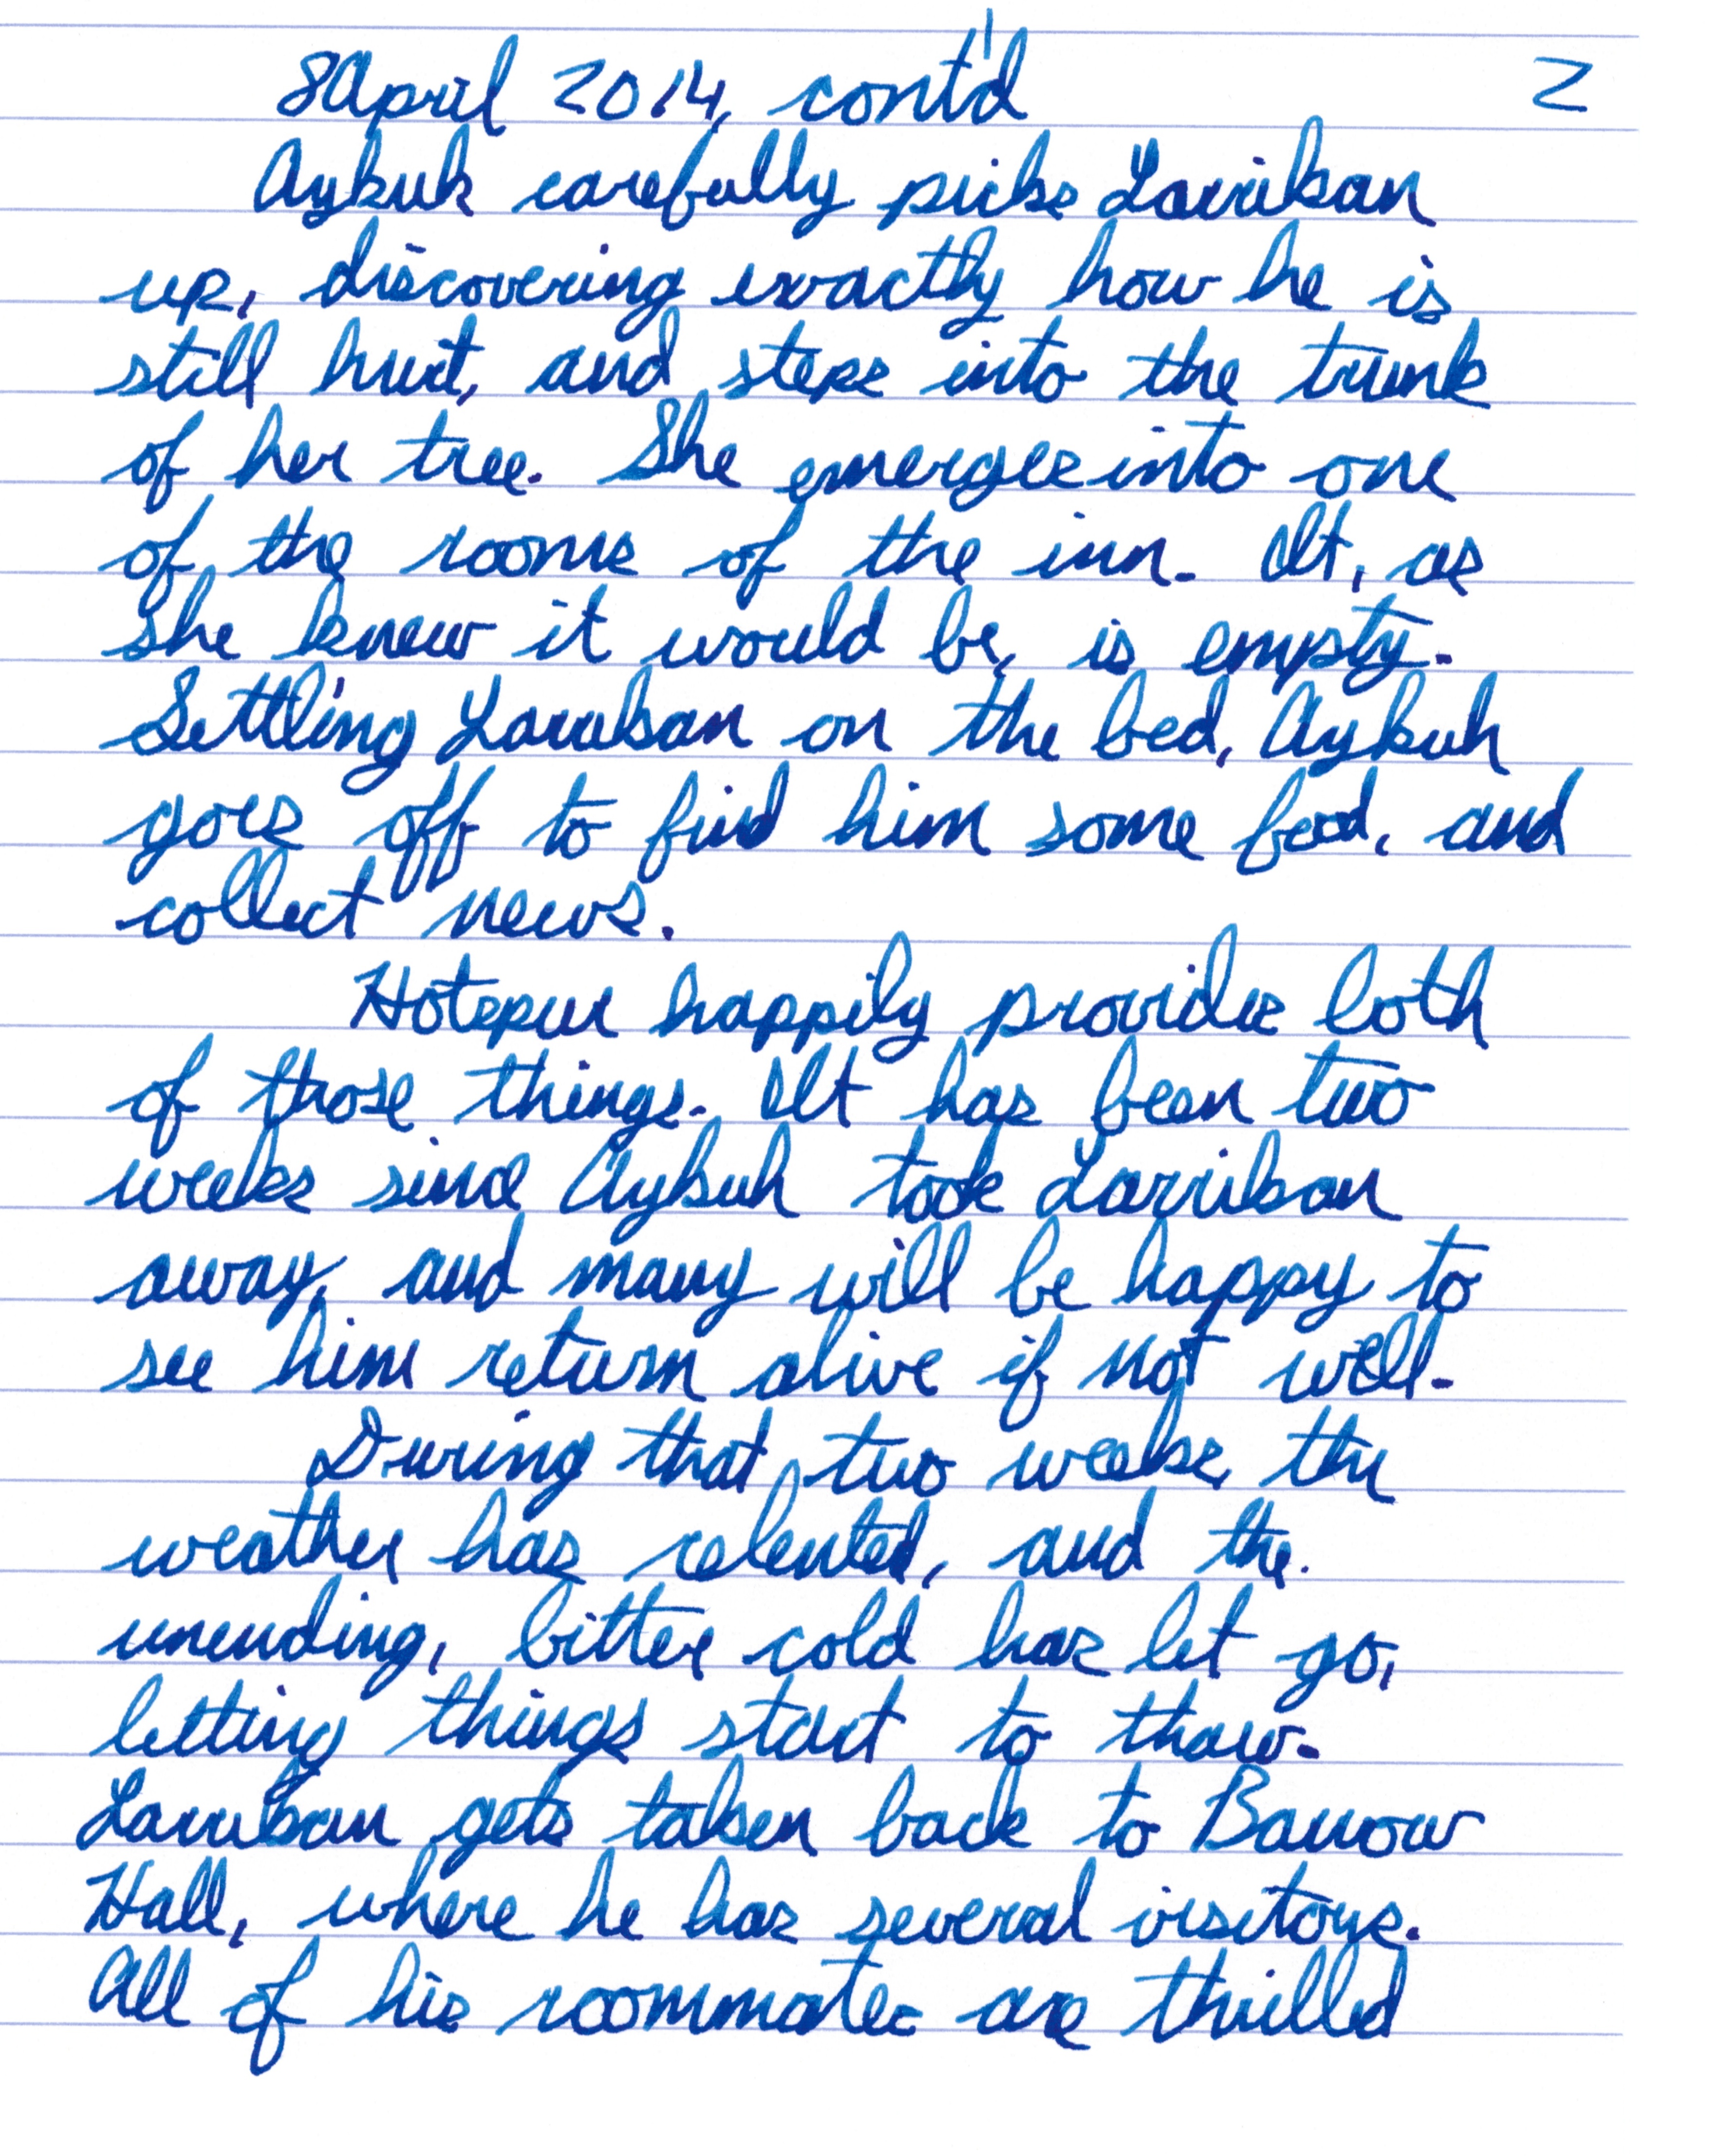 8 April 2014, cont'd 2
Aykuh carefully picks Larriban
up, discovering exactly how he is
still hurt, and steps into the trunk
of her tree. She emerges into one
of the rooms of the inn. It, as
she knew it would be, is empty.
Settling Larriban on the bed, Aykuh
goes off to find him some food, and
collect news.
Hotspur happily provides both
of those things. It has been two
weeks since Aykuh took Larriban
away, and many will be happy to
see him return alive if not well.
During that two weeks, the
weather has relented, and the
unending, bitter cold has let go,
letting things start to thaw.
Larriban gets taken back to Barrow
Hall, where he has several visitors.
All of his roommates are thrilled